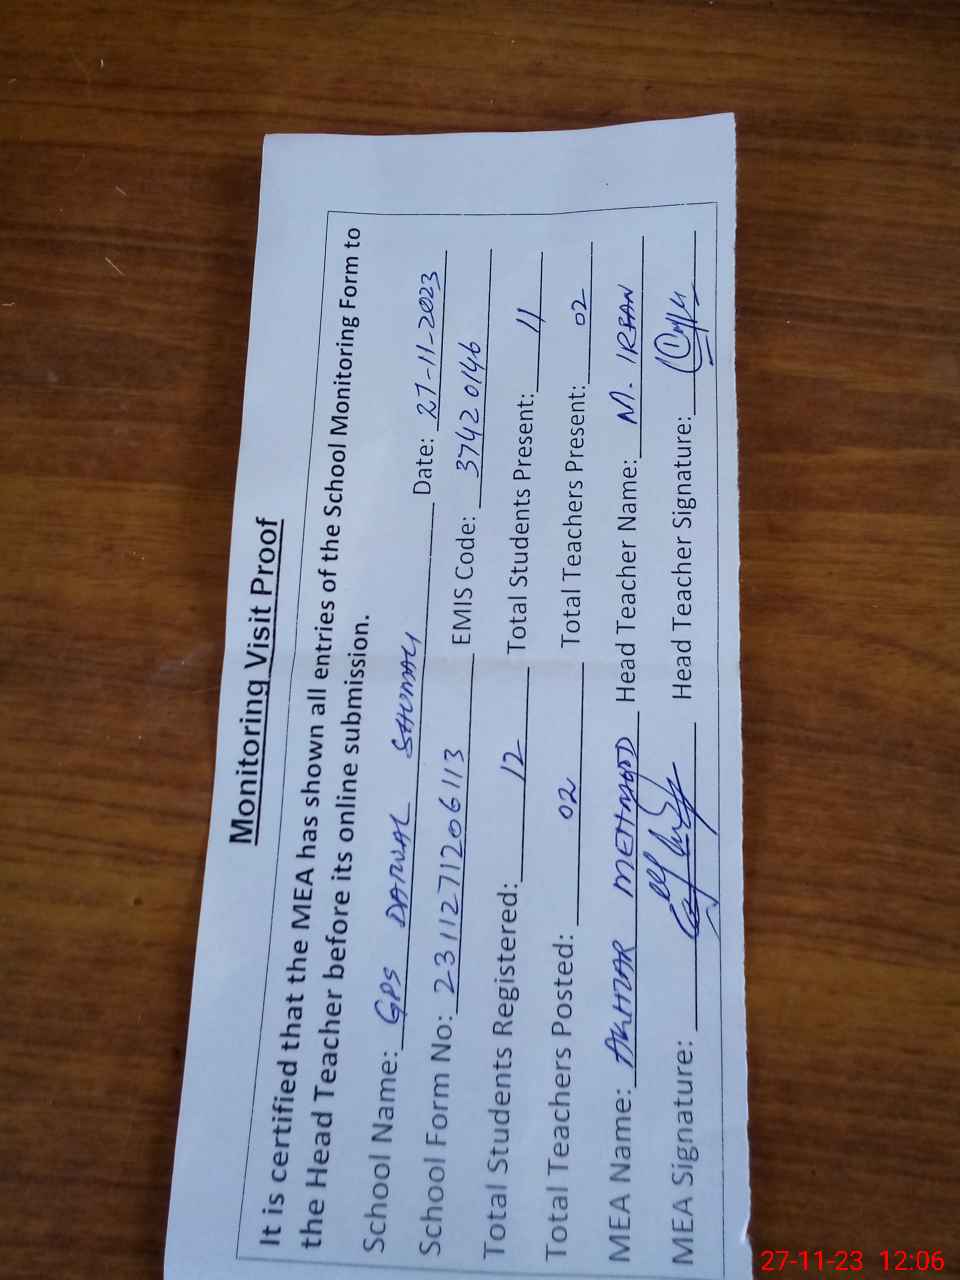 Monitoring Visit Proof
It is certified that the MEA has shown all entries of the School Monitoring Form to
the Head Teacher before its online submission.
School Name: GPS DARWAL SHUMALI Date: 27-11-2023
School Form No: 2311271206113 EMIS Code: 37420146
Total Students Registered: 12 Total Students Present: 11
Total Teachers Posted: 02 Total Teachers Present: 02
MEA Name: AKHTAR MEHMOOD Head Teacher Name: M. IRFAN
MEA Signature: Head Teacher Signature:
27-11-23 12:06